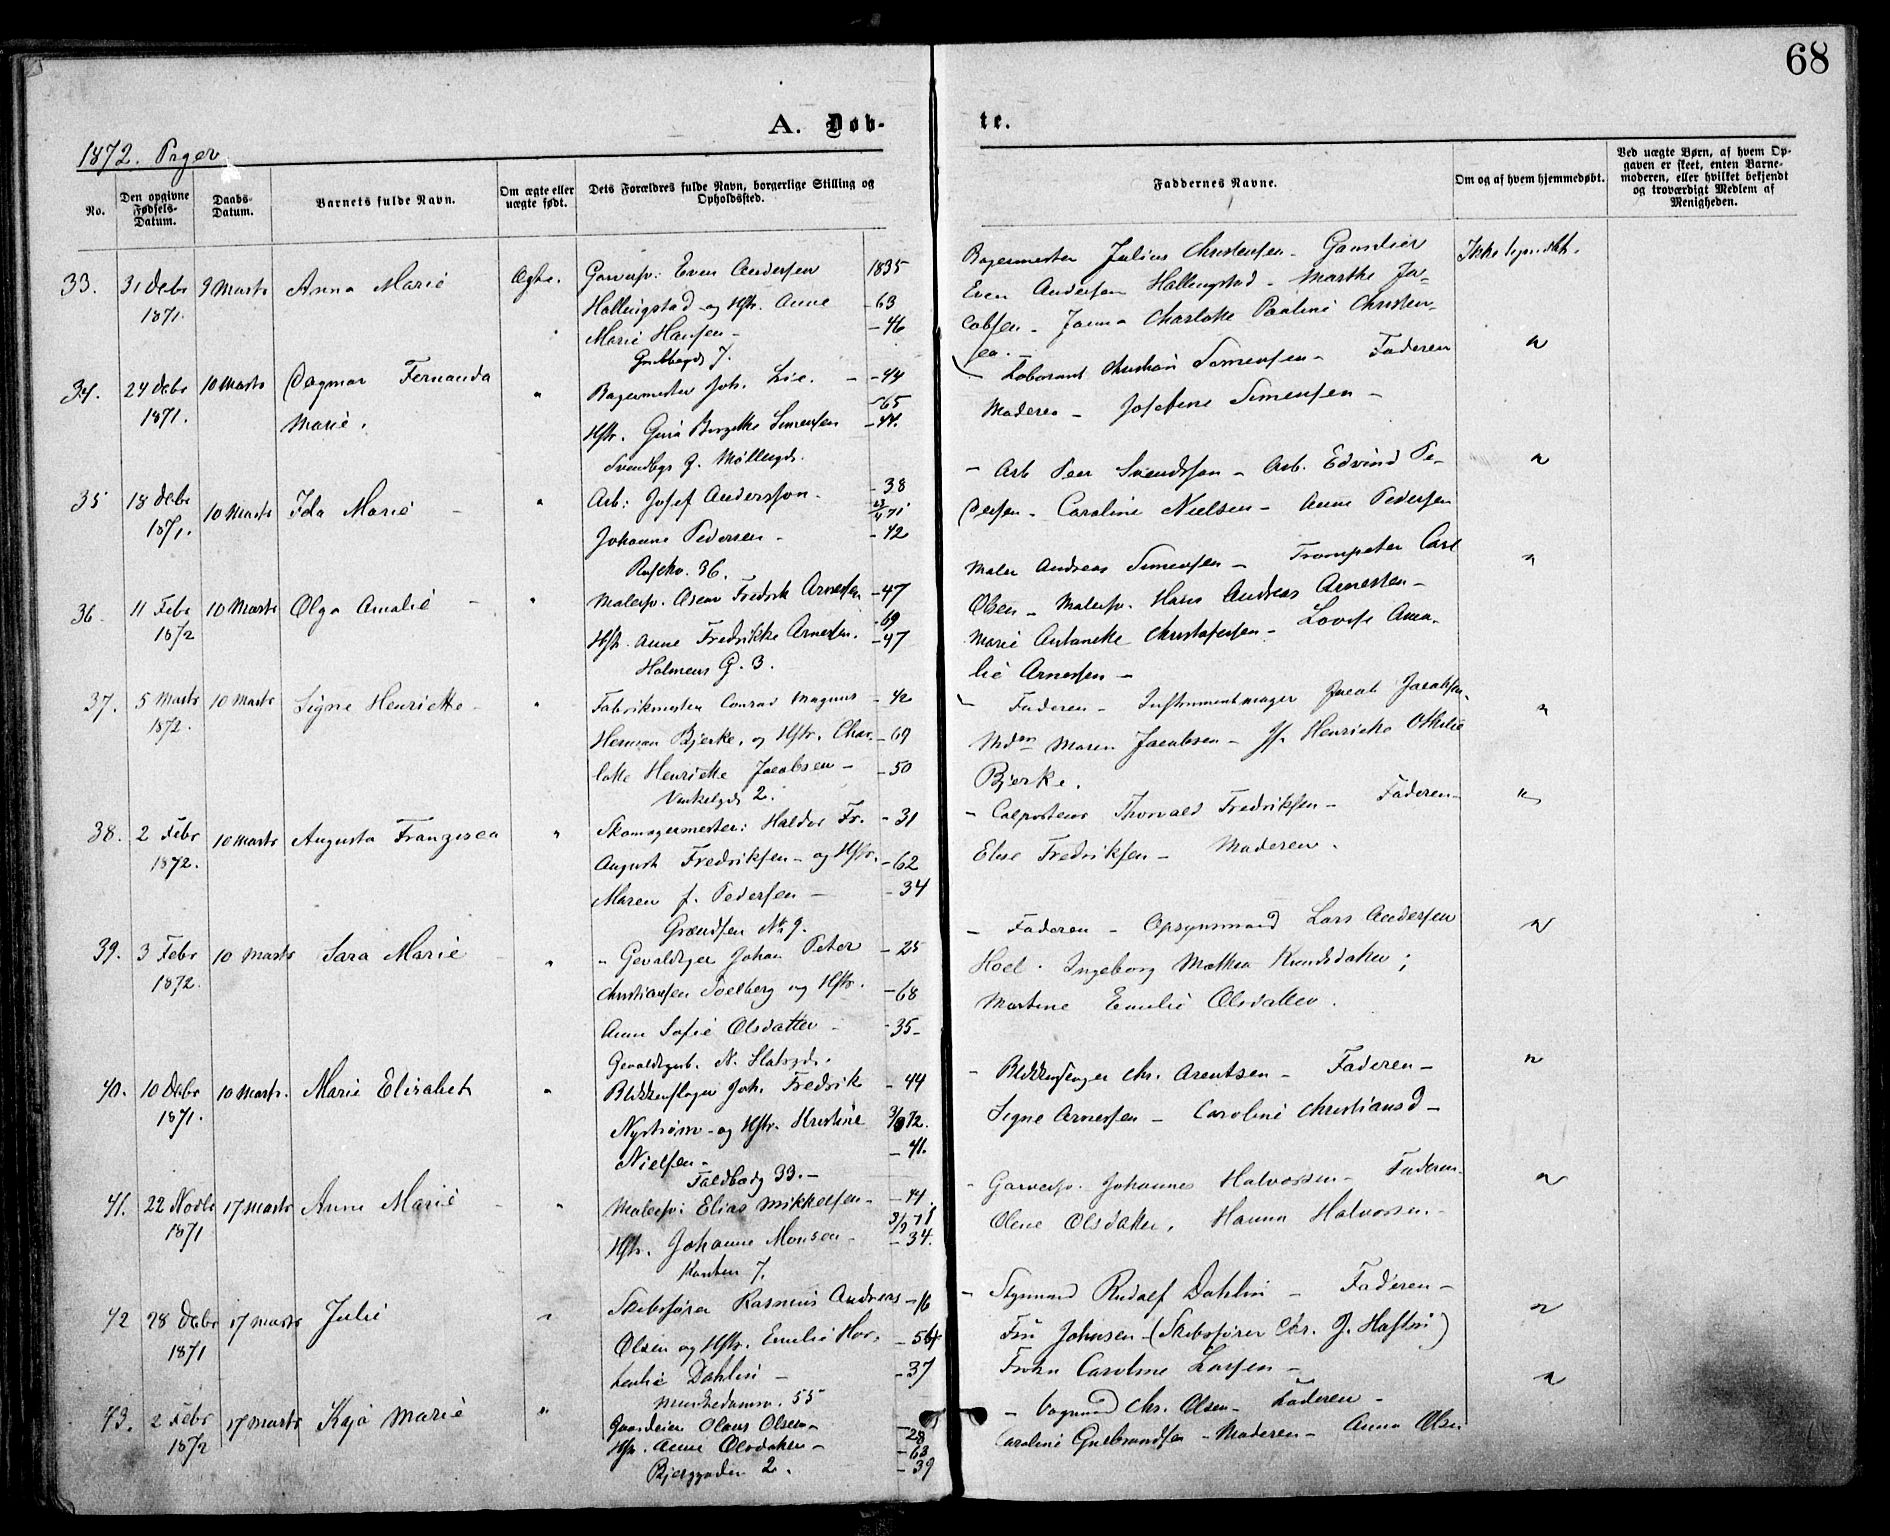 68
A. Døb-
te.
1872. Pager
No.
Den opgivne Fødsels-Datum.
Daabs-Datum.
Barnets fulde Navn.
Om ægte eller uægte født.
Dets Forældres fulde Navn, borgerlige Stilling og Opholdssted.
Faddernes Navne.
Om og af hvem hjemmedøbt.
Ved uægte Børn, af hvem Op-
gaven er skeet, enten Barne-
moderen, eller hvilket bekjendt
og troværdigt Medlem af
Menigheden.
33. 31 Debr 9 Marts Anna Marie Ægte. Garversv: Even Andersen 1835
1871. Hallingstad og Hstr. Anne -63
Marie Hansen - -46
7.
Bagermester Julius Christensen - Gaardeier
Even Andersen Hallingstad - Marthe Ja-
cobsen - Janna Charlotte Pauline Christen-
34. 24 Debr 10 Marts Dagmar Fernanda " Bagermester Joh. Lie. - -44
1871. Marie. -65
Hstr. Borgitte Simensen -44.
G. Møllergd.
- Laborant Christian Simensen - Faderen "
Moderen - Josefine Simensen -
35 18 Debr 10 Marts Ida Marie - " Arb: Josef Andersson. -38
1871. 71
Johanne Pedersen - -42
36.
- Arb Peer Svendsen - Arb. Edvind Pe- "
dersen - Caroline Nielsen - Anne Pedersen
36. 11 Febr 10 Marts Olga Amalie - " Malersv. Oscar Fredrik Arnesen -47
1872 -69
Hstr. Anne Fredrikke Arnesen. -47
Holmens G. 3.
Maler Andreas Simensen - Trompeter Carl "
Olsen - Malersv. Hans Andreas Arnesen -
Marie Antonette Christofersen - Lovise Ama-
lie Arnesen -
37. 5 Marts 10 Marts Signe Henriette - " Fabrikmester Conrad Magnus -42
1872. Herman Bjerke, og Hstr. Char- -69
lotte Henriette Jacobsen - -50
Vinkelgd. 2.
Faderen - Instrumentmager Jacob Jacobsen - "
Mdm Maren Jacobsen - Jf. Henriette Othilie
Bjerke.
38. 2 Febr 10 Marts Augusta Franzisca " Skomagermester: Haldor Fr. -31
1872. August Fredriksen - og Hstr. -62
Maren f. Pedersen - -34
Grændsen No 9.
- Colporteur Thorvald Fredriksen - Faderen - "
Elise Fredriksen - Moderen.
39. 3 Febr 10 Marts Sara Marie - " Gevaldiger Johan Peter -25
1872. Christiansen Soelberg og Hstr. -68
Anne Sofie Olsdatter - -35-
- Faderen - Opsynsmand Lars Andersen "
Hoel. Ingeborg Mathea Knudsdatter;
Martine Emilie Olsdatter.
40. 10 Debr 10 Marts. Marie Elisabet " Blikkenslager Joh. Fredrik -44
1871. Nystrøm - og Hstr. Kristine 72.
Nielsen - -41.
33. -
- Blikkenslager Chr. Arentsen - Faderen - "
Signe Arnesen - Caroline Christiansd -
41. 22 Novbr 17 Marts Anne Marie - " Malersv: Elias Mikkelsen - -44.
1871 71
Hstr. Johanne Monsen - -34.
7.
- Garversv. Johannes Halvorsen - Faderen - "
Olene Olsdatter. Hanna Halvorsen -
42 28 Debr 17 Marts Julie " Skibsfører Rasmus Andreas -16
1871 Olsen og Hstr. Emilie Hor- -54
tensie Dahlin - -37
Munkedamsv. 55
- Rudolf Dahlin - Faderen - "
Frü Johnsen - (Skibsfører Chr. J. )
Frøkn Caroline Larsen -
43. 2 Febr 17 Marts Kaja Marie " Gaardeier Olaus Olsen - -28
1872 Hstr. Anne Olsdatter - -63
Bjerggaden 2. -39
- Vognmd Chr. Olsen - Faderen - "
Caroline Gulbrandsen - Moderen - Anna Olsen